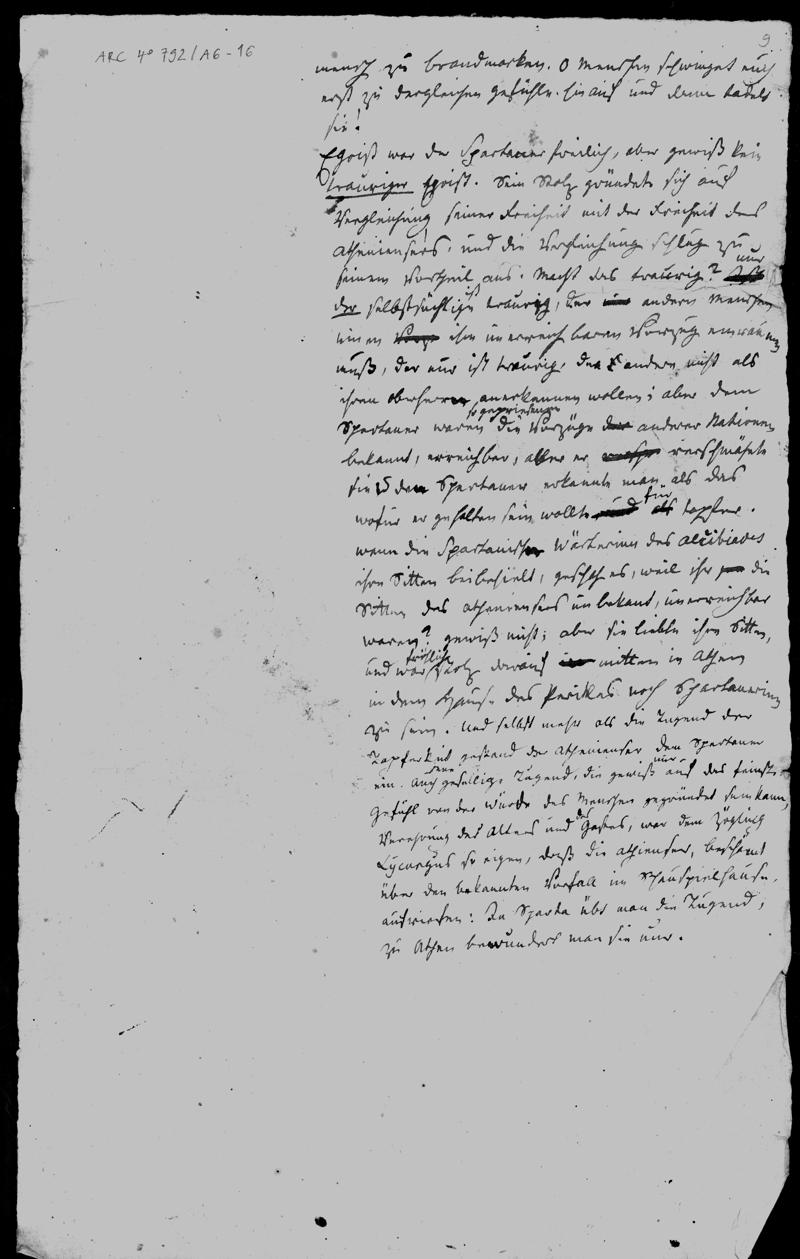 9
ARC 4° 792/A6-16
mensch zu brandmarken. O Menschen schwinget euch
erst zu dergleichen gefühle hinauf und dann tadelt
sie!
Egoist war der Spartaner freilich, aber gewiß kein
trauriger Egoist. Sein Stolz gründete sich auf
Vergleichung seiner Freiheit mit der Freiheit des
Atheniensers, und die Vergleichung schlug zu
seinem Vortheil aus. Macht das traurig? nur
der selbstsüchtige ist traurig, der andern Menschen
einen ihm unerreichbaren Vorzug einräumen
muß, der nur ist traurig, den andere nicht als
ihren Oberherrn anerkennen wollen; aber dem
Spartaner waren die so gepriesenen Vorzüge anderer Nationen
bekannt, erreichbar, aber er verschmähete
sie den Spartaner erkannte man als das
wofür er gehalten sein wollte für tapfer.
wenn die Spartanische Wärterinn des Alcibiades
ihre Sitten beibehielt, geschah es, weil ihr die
Sitten des Atheniensers unbekant, unerreichbar
waren? gewiß nicht; aber sie liebte ihre Sitten,
und war fröhlich stolz darauf mitten in Athen
in dem Hause des Perikles noch Spartanerinn
zu sein. Und selbst mehr als die Tugend der
Tapferkeit gestand der Athenienser dem Spartaner
ein. Auch jene gesellige Tugend, die gewiß nur auf das feinste
Gefühl von der Würde des Menschen gegründet sein kann,
Verehrung des Alters und des Gastes, war dem Zögling
Lycurgus so eigen, daß die Athienser, beschämt
über den bekannten Vorfall im Schauspielhause,
ausriefen: In Sparta übt man die Tugend,
zu Athen bewundert man sie nur.